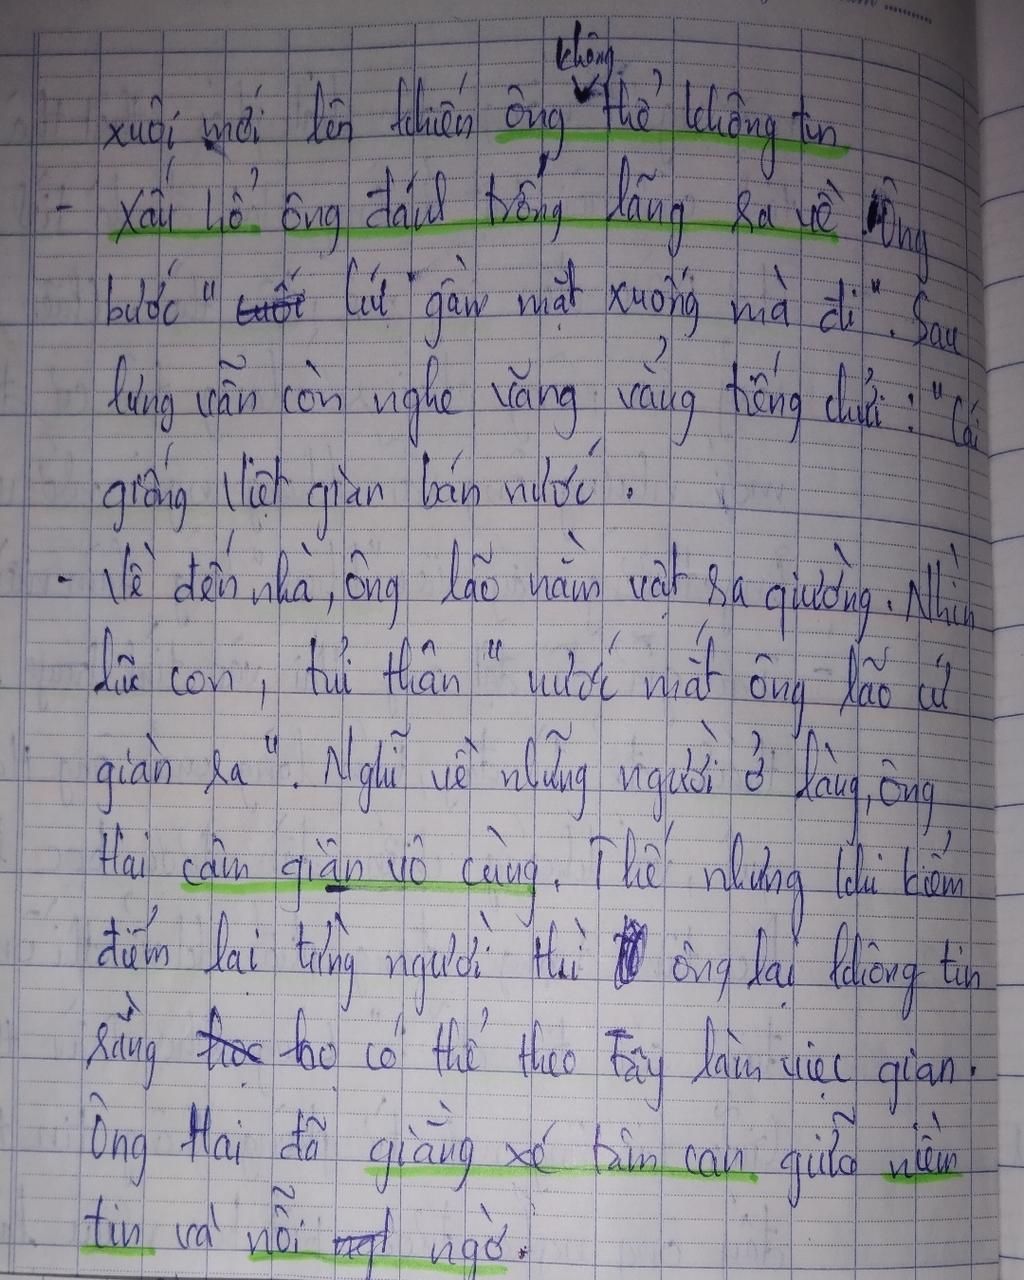 không
xuôi mới lên khiến ông thể không tin
- Xấu hổ ông đánh trống lãng ra về Ông
bước " cuối cứ "gằm mặt xuống mà đi". Sau
lưng vẫn còn nghe văng vẳng tiếng chửi : "Cái
giống Việt gian bán nước .
- Về đến nhà, ông lão nằm vật ra giường. Nhìn
lũ con, tủi thân " nước mắt ông lão cứ
giàn ra". Nghĩ về những người ở làng, ông
Hai căm giận vô cùng. Thế nhưng khi kiểm
điểm lại từng người thì ông lại không tin
rằng học họ có thể theo Tây làm việc gian.
Ông Hai đã giằng xé tâm can giữa niềm
tin và nỗi ngờ.